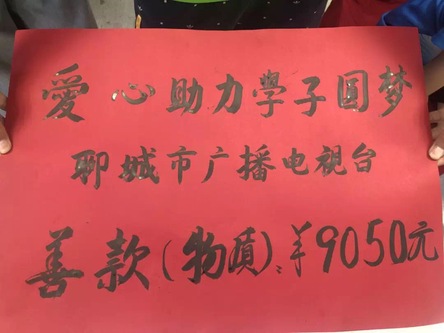 愛心助力學子圆梦
聊城市广播电視台
善款(物質):￥9050元